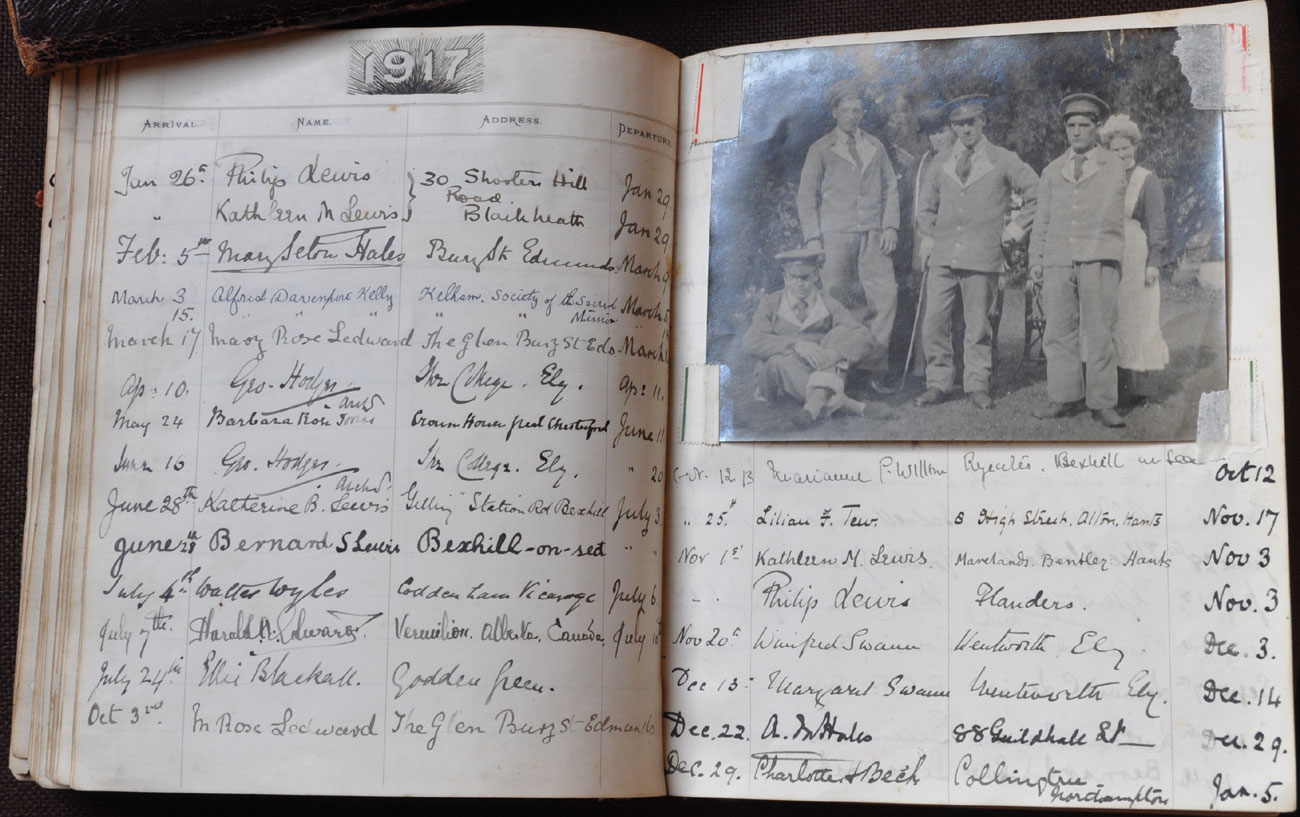 1917
ARRIVAL. NAME. ADDRESS. DEPARTURE.
Jan 26th Philip Lewis } 30 Shooters Hill Jan 29
Road
" Kathleen M Lewis Blackheath Jan 29
Feb: 5th Mary Seton Hales Bury St Edmunds March 9
March 3 Alfred Davenport Kelly Kelham. Society of the Sacred March 5
15. " " " " Mission
March 17 Mary Rose Ledward The Glen Bury St Eds March
Ap: 10. Geo. Hodges College. Ely. Ap: 11.
May 24 Barbara Rose Jones Crown House Great Chesterford June 11
June 16 Geo. Hodges College. Ely. " 20
June 28th Katherine B. Lewis Station Rd Bexhill July 3
June 28 Bernard S Lewis Bexhill-on-sea " "
July 4th Walter Wyles Coddenham Vicarage July 6
July 7th. Harold Edwards. Vermilion. Alberta. Canada. July
July 24th Ellie Blackall. Godden Green.
Oct 3rd. M Rose Ledward The Glen Bury St Edmunds
Oct. 12 Marianne Bexhill on Sea Oct 12
" 25th Lilian F. Tew. 8 High Street. Alton. Hants Nov. 17
Nov 1st Kathleen M. Lewis. Marelands. Bentley. Hants Nov 3
" Philip Lewis Flanders. Nov. 3
Nov 20th Winifred Swann Wentworth, Ely. Dec. 3.
Dec 13th Margaret Swann Wentworth Ely. Dec. 14
Dec. 22. A. M Hales 88 Guildhall St Dec. 29.
Dec. 29. Charlotte H Beck Collingtree Jan. 5.
Northampton